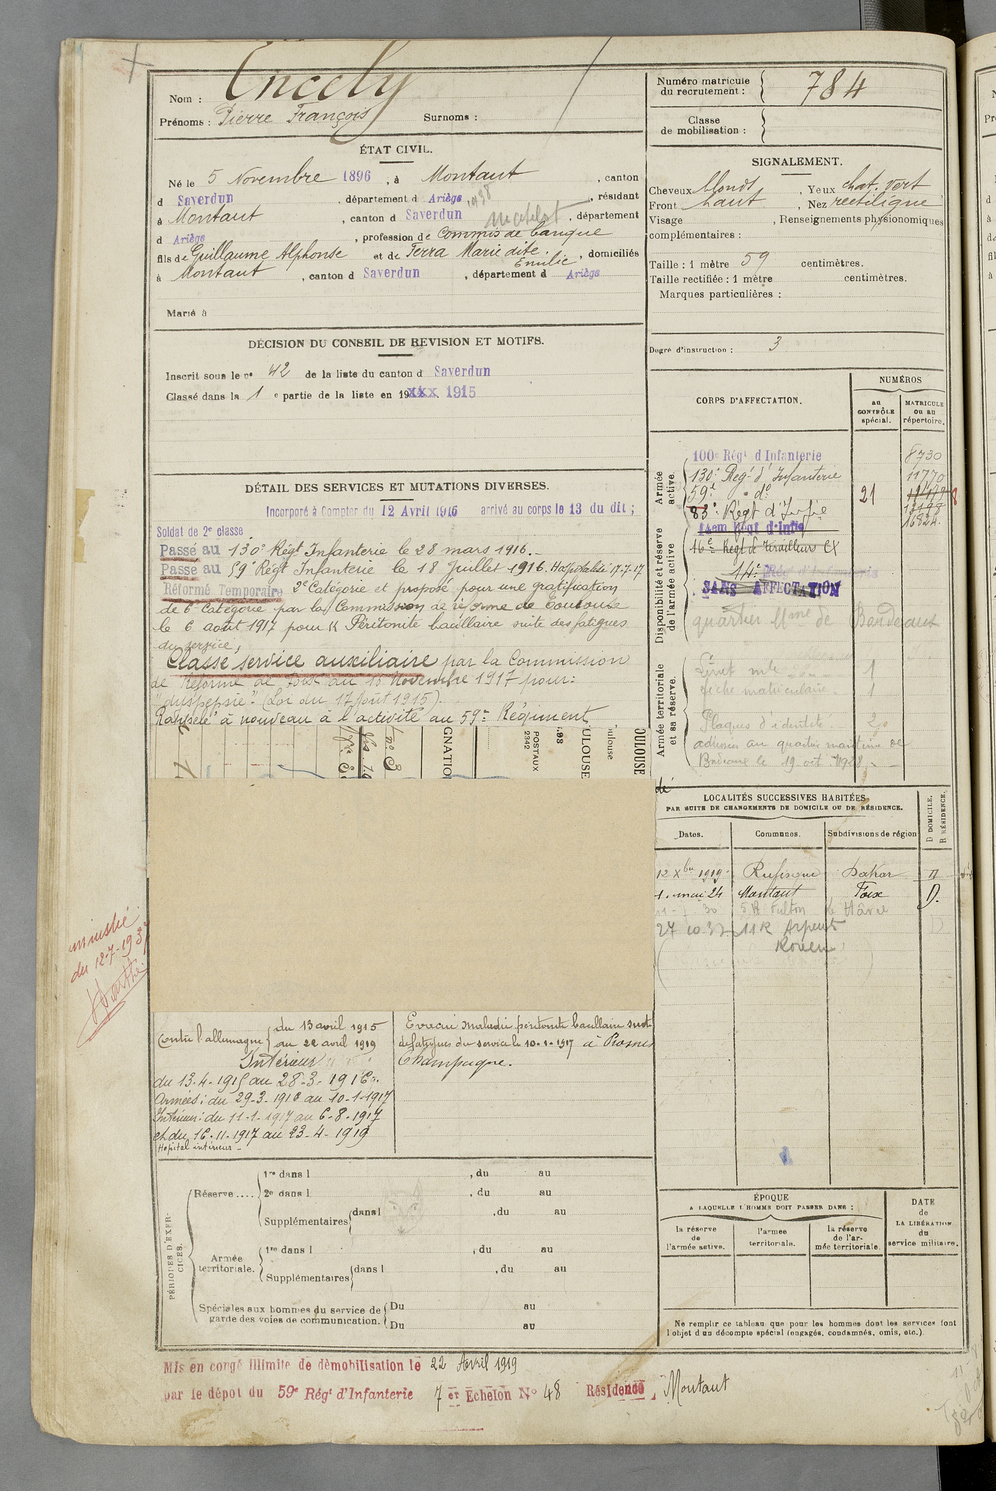 Nom : Encely
Prénoms : Pierre François Surnoms :
Numéro matricule du recrutement : 784
Classe de mobilisation :
ÉTAT CIVIL.
Né le 5 Novembre 1896, à Montaut, canton
d Saverdun, département d Ariège, résidant
à Montaut, canton d Saverdun, département
d Ariège, profession de Commis de banque
fils de Guillaume Alphonse et de Terra Marie dite Emilie, domiciliés
à Montaut, canton d Saverdun, département d Ariège
Marié à
SIGNALEMENT.
Cheveux blonds, Yeux chat. vert
Front haut, Nez rectiligne
Visage , Renseignements physionomiques
complémentaires :
Taille : 1 mètre 59 centimètres.
Taille rectifiée : 1 mètre centimètres.
Marques particulières :
Degré d'instruction : 3
DÉCISION DU CONSEIL DE REVISION ET MOTIFS.
Inscrit sous le n° 42 de la liste du canton d Saverdun
Classé dans la 1 e partie de la liste en 19xxx. 1915
DÉTAIL DES SERVICES ET MUTATIONS DIVERSES.
Incorporé à Compter du 12 Avril 1916 arrivé au corps le 13 du dit ;
Soldat de 2e classe
Passé au 130e Régt Infanterie le 28 mars 1916.
Passé au 59e Régt Infanterie le 18 Juillet 1916.
Réformé Temporaire 2e Catégorie et proposé pour une gratification
de 6e Catégorie par la Commission de réforme de Toulouse
le 6 août 1917 pour Péritonite bacillaire suite des fatigues
du service,
Classé service auxiliaire par la Commission
de Réforme de Foix du 16 Novembre 1917 pour :
"dyspepsie" (Loi du 17 Août 1915)
Rappelé à nouveau à l'activité au 59e Régiment
GNATION
POSTAUX
2342
ULOUSE
OULOUSE
CORPS D'AFFECTATION.
NUMÉROS
au contrôle spécial.
MATRICULE ou au répertoire.
Armée active.
100e Régt d'Infanterie 8730
130e Regt d'Infanterie 11770
59e d°
83e Régt d'Infie
21
16824
Disponibilité et réserve de l'armée active
14em Régt d'Infie
16e Régt de Tirailleurs
14e Rég d'Infanterie
SANS AFFECTATION
quartier de Bordeaux
Armée territoriale et sa réserve.
Livret mle 1
fiche matriculaire 1
Plaques d'identité
admin au quartier maritime de
Bordeaux le 19 oct. 1928
LOCALITÉS SUCCESSIVES HABITÉES
PAR SUITE DE CHANGEMENTS DE DOMICILE OU DE RÉSIDENCE.
Dates. Communes. Subdivisions de région D DOMICILE. R RÉSIDENCE.
12 Xbre 1919 Rufisque Dakar
mai 24 Montaut Foix D.
30 Fulton le Hâvre
27 10 32 11 R Arpent
Rouen
amnistié
du 12-7-193
Contre l'allemagne du 13 avril 1915
au 22 avril 1919
Intérieur
du 13-4-1915 au 28-3-1916.
Armées : du 29-3-1916 au 10-1-1917
Intérieur : du 11-1-1917 au 6-8-1917
et du 16-11-1917 au 23-4-1919
Hopital intérieur
Evacué maladie péritonite bacillaire suite
de fatigues du service le 10-1-1917 à
Champagne.
PÉRIODES D'EXERCICES.
Réserve.... 1re dans l , du au
2e dans l , du au
Supplémentaires dans l , du au
Armée territoriale. 1re dans l , du au
Supplémentaires dans l , du au
Spéciales aux hommes du service de garde des voies de communication. Du au
Du au
ÉPOQUE
A LAQUELLE L'HOMME DOIT PASSER DANS :
la réserve de l'armée active.
l'armée territoriale.
la réserve de l'armée territoriale.
DATE de LA LIBÉRATION du service militaire.
Ne remplir ce tableau que pour les hommes dont les services font
l'objet d'un décompte spécial (engagés, condamnés, omis, etc.)
Mis en congé illimité de démobilisation le 22 Avril 1919
par le dépôt du 59e Régt d'Infanterie 7 er Echelon N° 48 Résidence Montaut